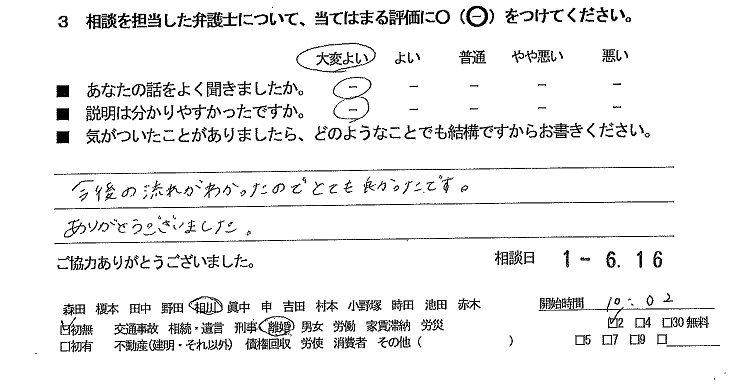 3 相談を担当した弁護士について、当てはまる評価に〇（㊀）をつけてください。
大変よい よい 普通 やや悪い 悪い
■ あなたの話をよく聞きましたか。 － － － － －
■ 説明は分かりやすかったですか。 － － － － －
■ 気がついたことがありましたら、どのようなことでも結構ですからお書きください。
今後の流れがわかったのでとても良かったです。
ありがとうございました。
ご協力ありがとうございました。 相談日 1－6.16
森田 榎本 田中 野田 相川 眞中 申 吉田 村本 小野塚 時田 池田 赤木 開始時間 10:02
☑初無 交通事故 相続・遺言 刑事 離婚 男女 労働 家賃滞納 労災 ☑2 □4 □30 無料
□初有 不動産(建明・それ以外) 債権回収 労使 消費者 その他 ( ) □5 □7 □9 □